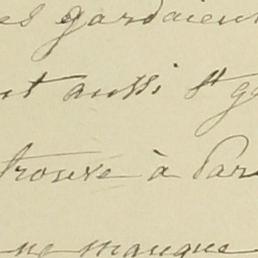 es gardaient
nt aussi St g
trouve à Par
ne manque